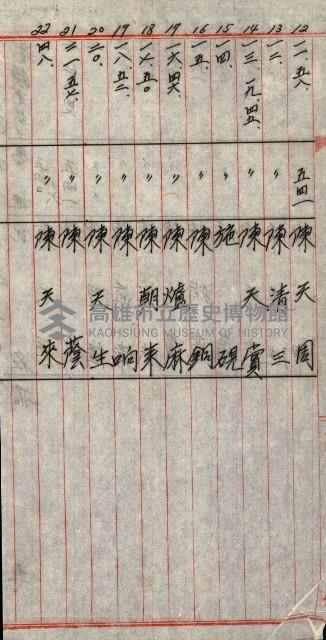 12 一一、五八、 五四一 陳天周
13 一二、 〃 陳清三
14 一三、一九、四五、 〃 陳天賞
15 一四、 〃 施硯
16 一五、 〃 陳銅
17 一六、四六、 〃 陳爐麻
18 一七、五〇 〃 陳朝來
19 一八、五二、 〃 陳响
20 二〇、 〃 陳天生
21 二一、五七、 〃 陳蔭
22 四八、 〃 陳天來
高雄市立歷史博物館
KAOHSIUNG MUSEUM OF HISTORY